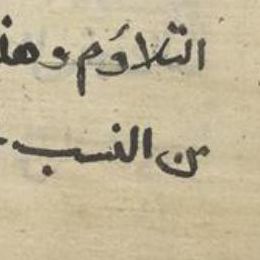 التلاؤم وهذ
من النسب